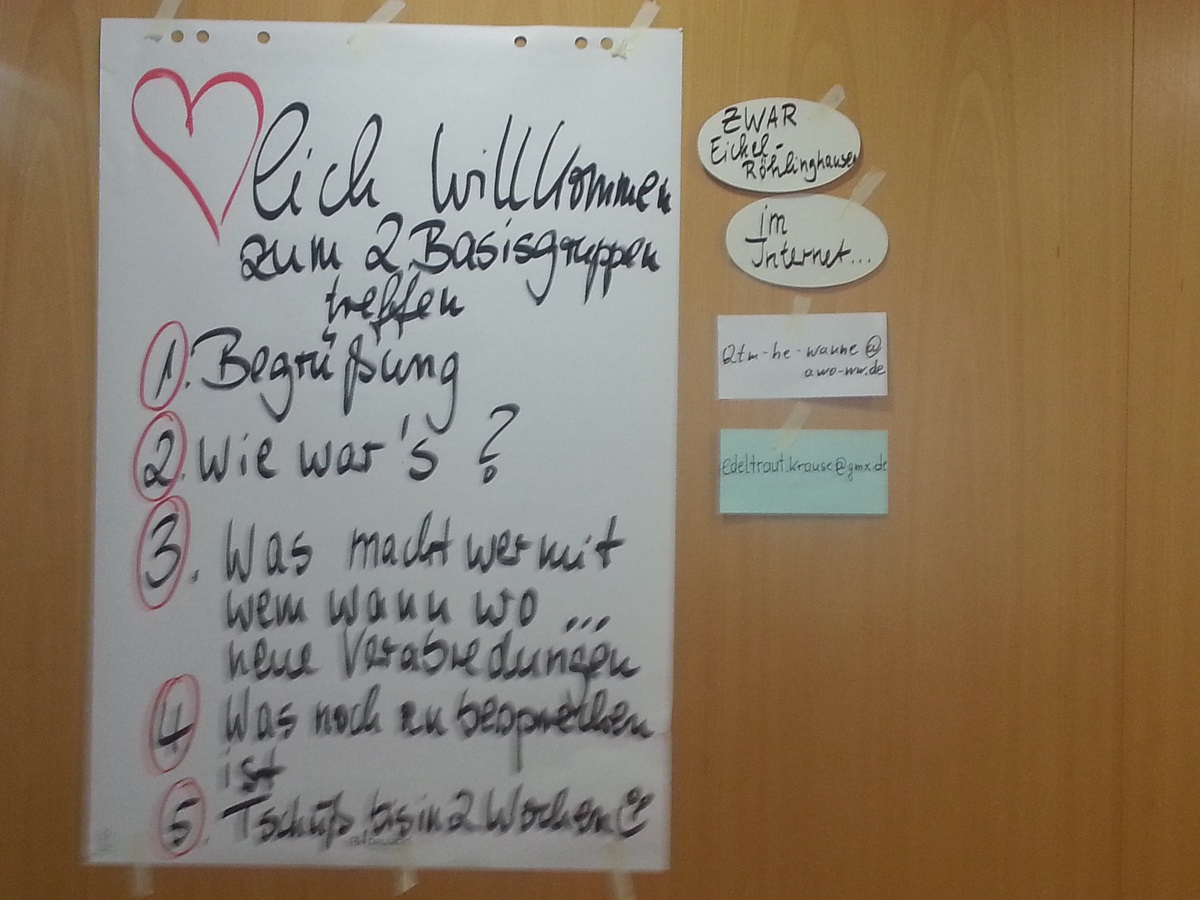 lich Willkommen
zum 2. Basisgruppen
treffen
1. Begrüßung
2. Wie war's ?
3. Was macht wer mit
wem wann wo ...
neue Verabredungen
4 Was noch zu besprechen
ist
5. Tschüß bis in 2 Wochen
ZWAR
Eickel-
Röhlinghausen
im
Internet...
Qtm-he-wanne@
awo-ww.de
Edeltraut.krause@gmx.de